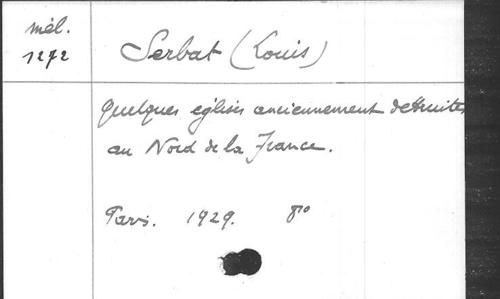 mél.
1272
Serbat (Louis)
Quelques églises anciennement détruites
au Nord de la France.
Paris. 1929. 8°